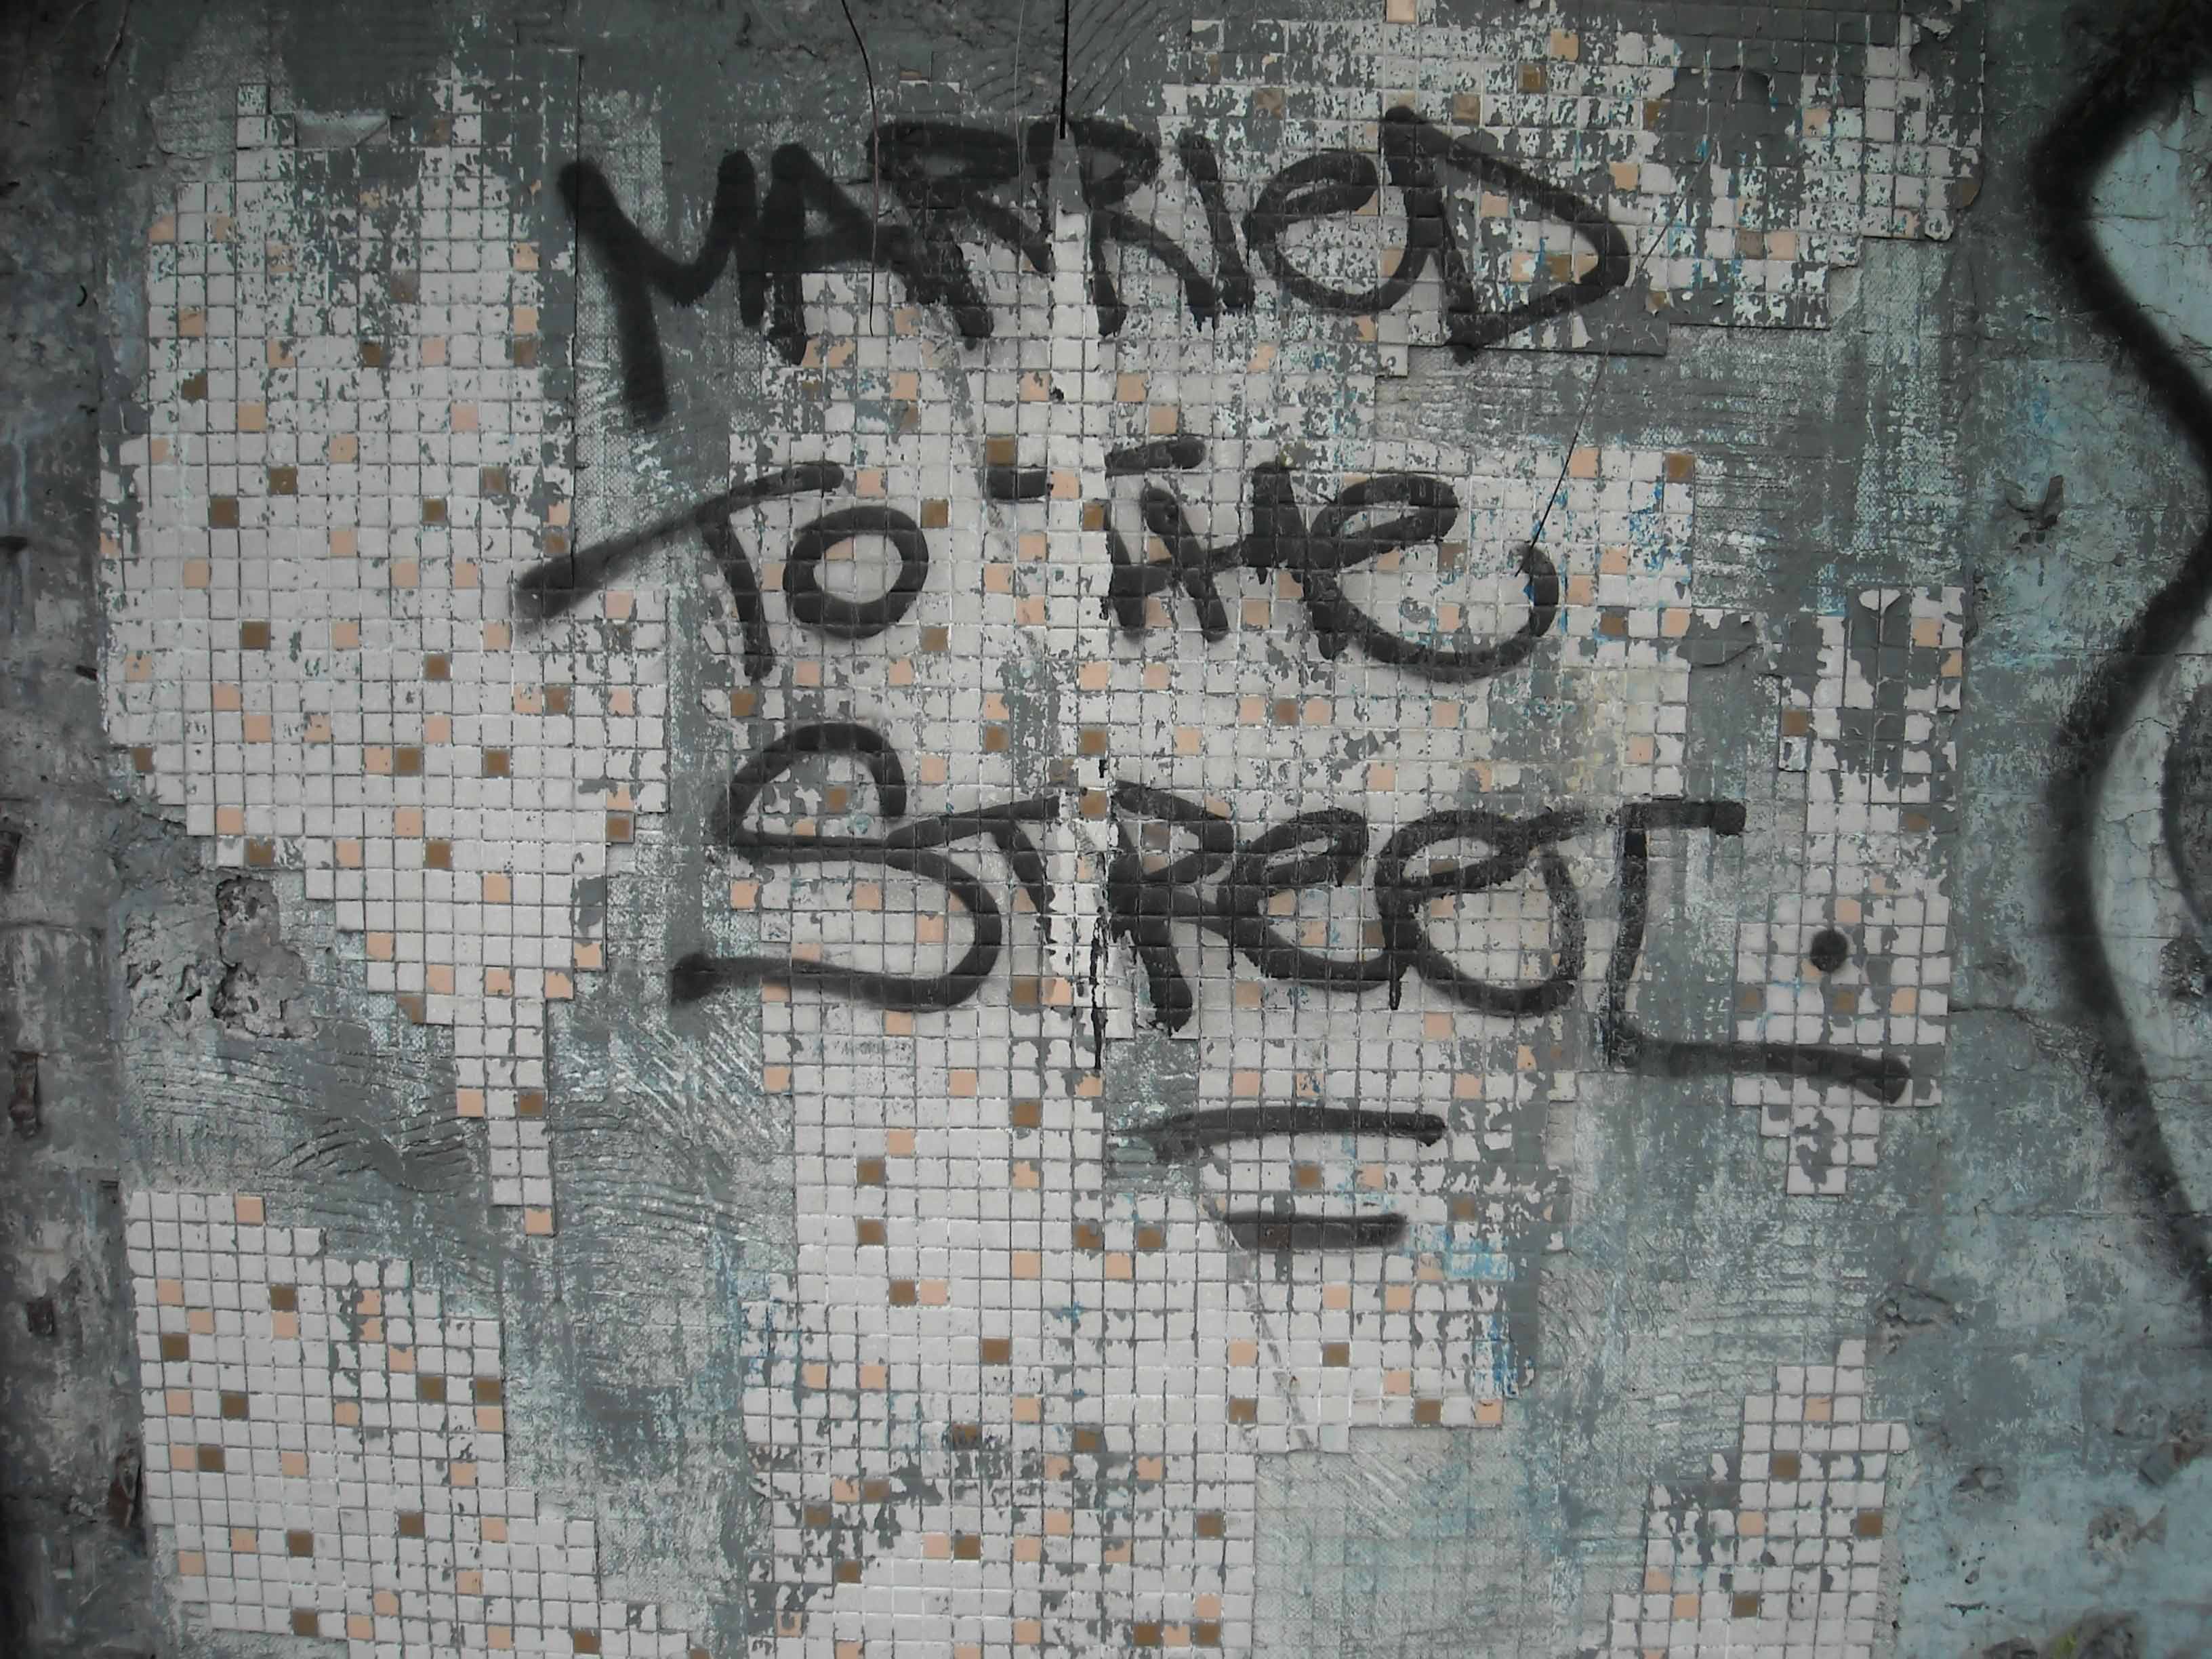 MARRIeD
TO-THe
STReeT.